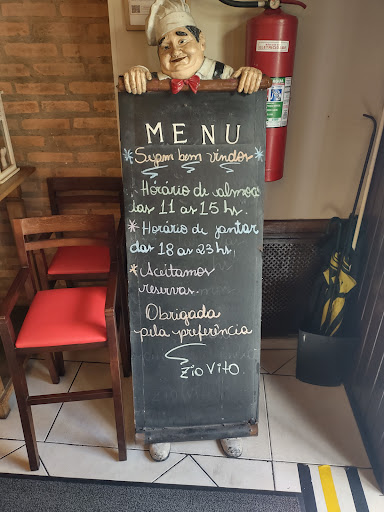 MENU
Sejam bem vindos
Horário de almoço
das 11 às 15 hs.
* Horário de jantar
das 18 às 23 hs
* Aceitamos
reservas.
Obrigada
pela preferência
Zio Vito